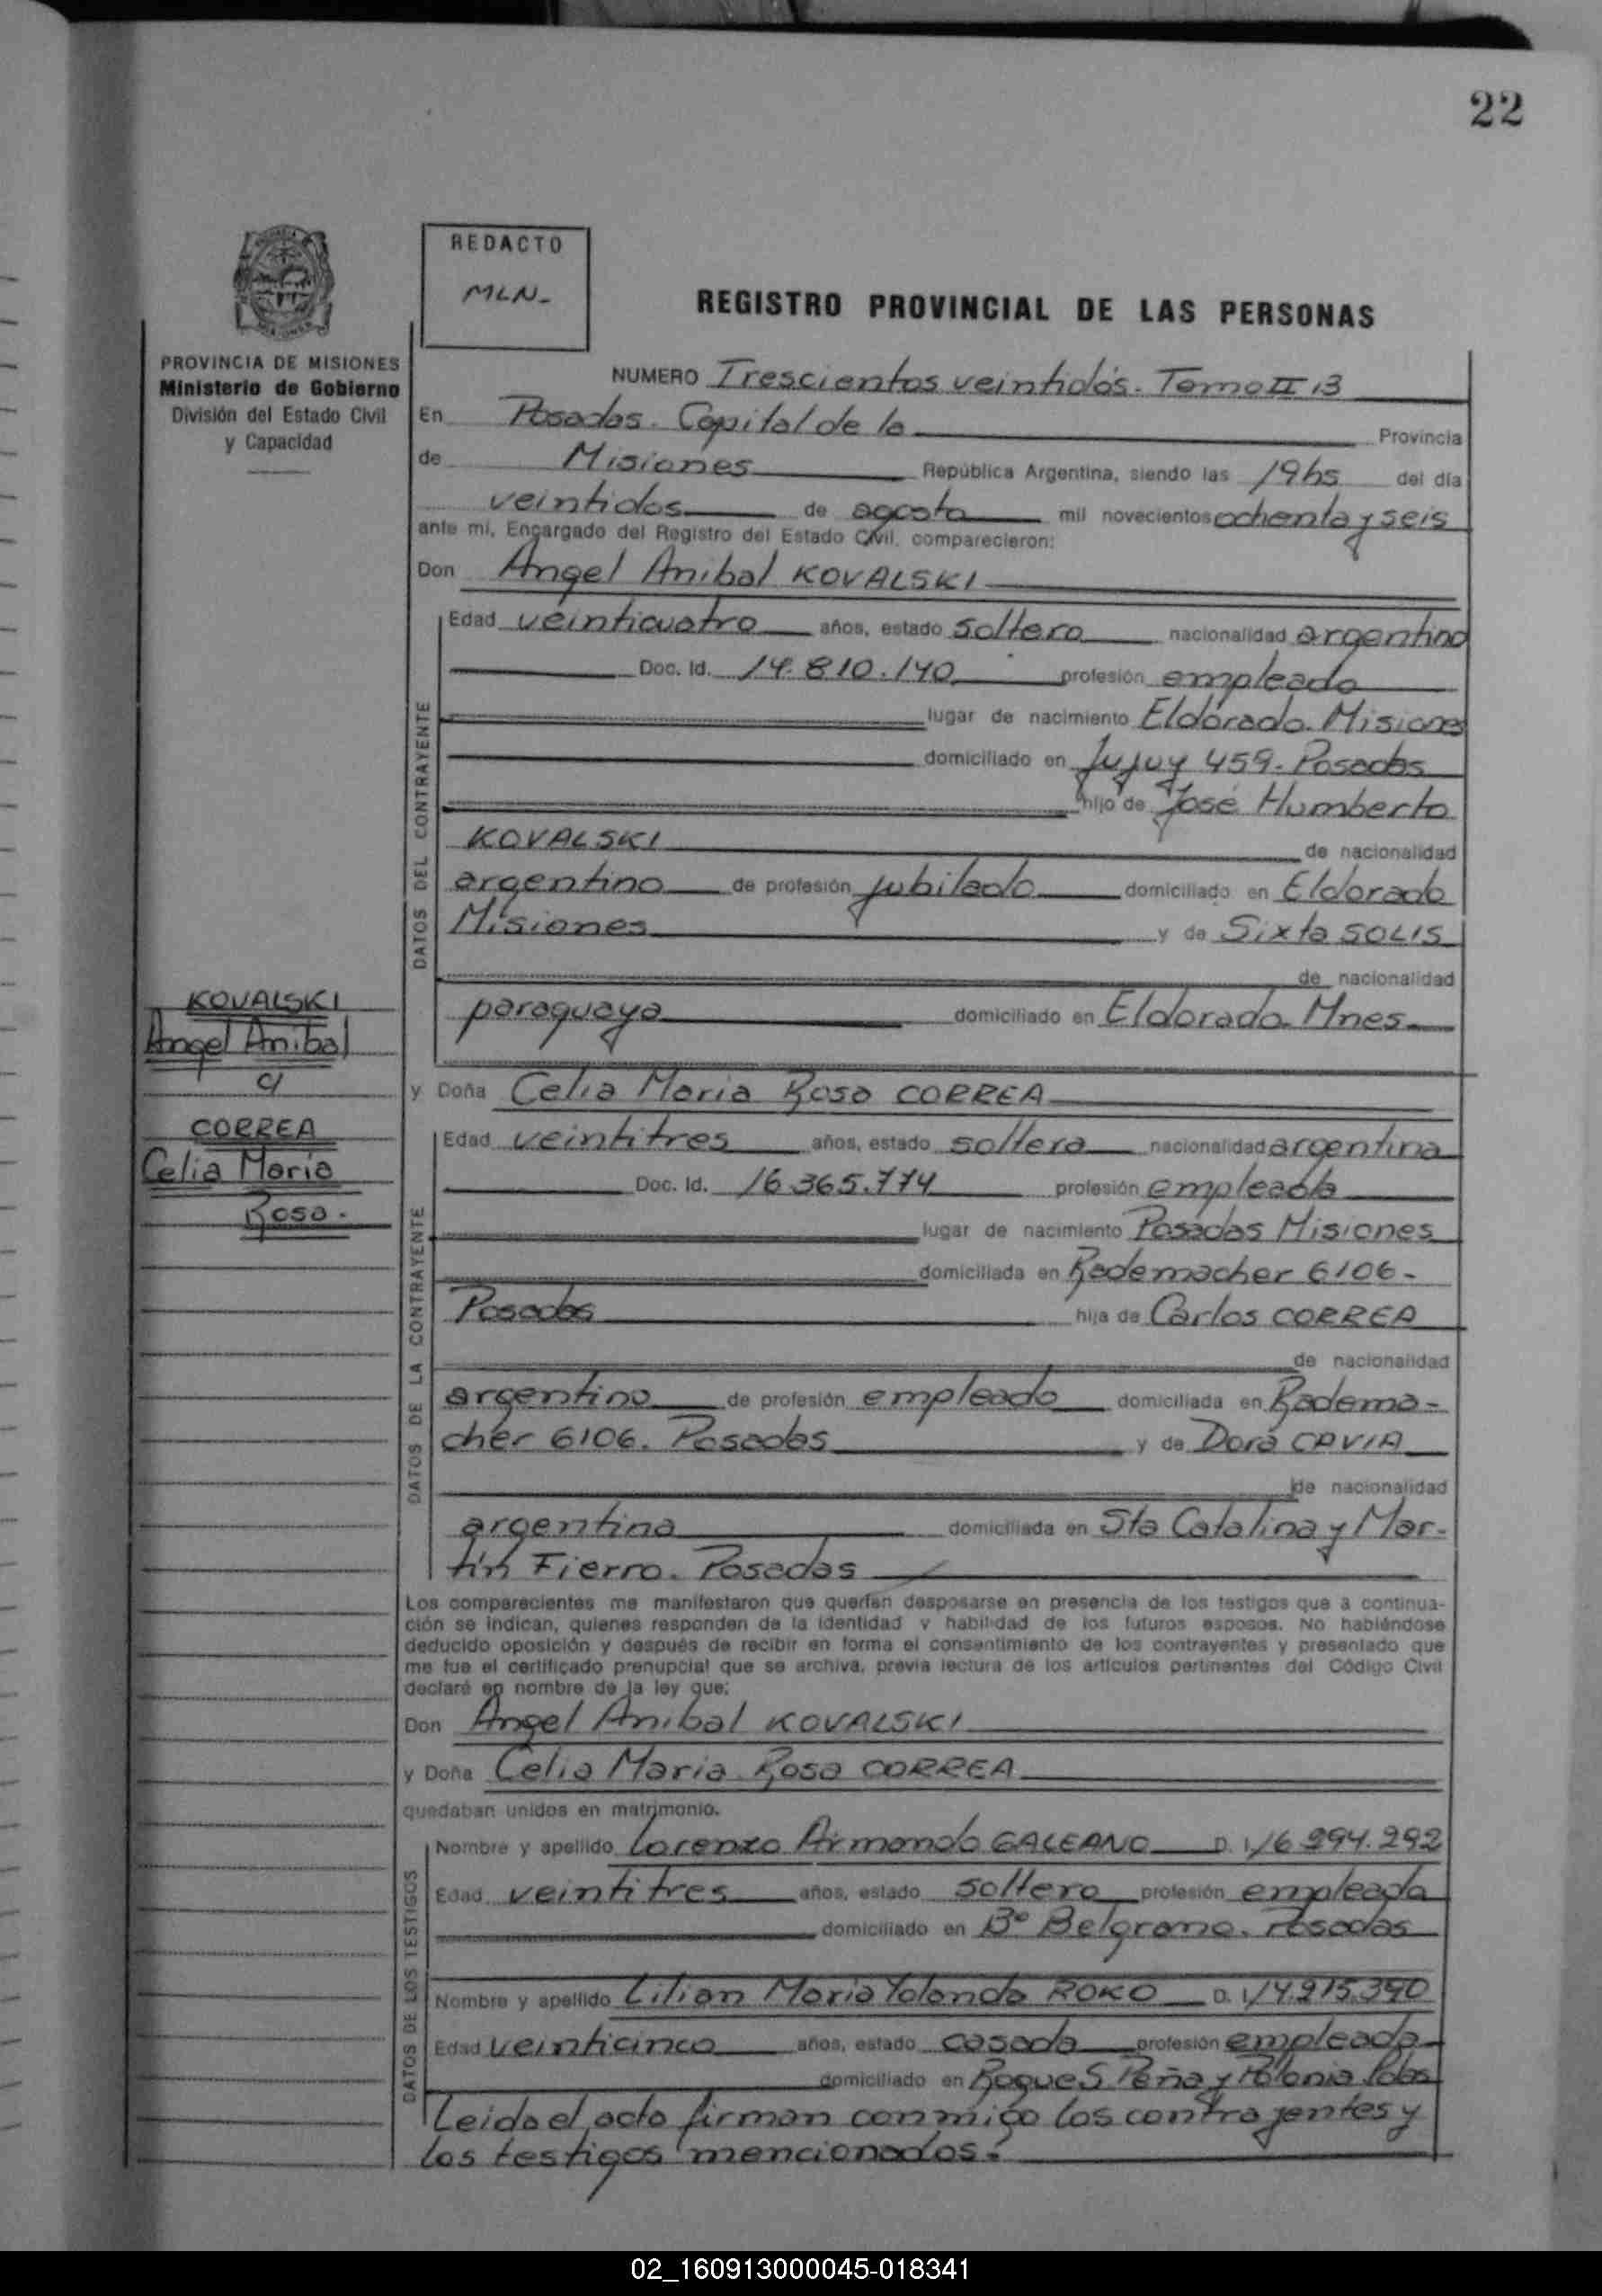 22
REDACTO
MLN-
REGISTRO PROVINCIAL DE LAS PERSONAS
PROVINCIA DE MISIONES
Ministerio de Gobierno
División del Estado Civil
y Capacidad
NUMERO Trescientos veintidós. Tomo II 13
En Posadas. Capital de la Provincia
de Misiones República Argentina, siendo las 19hs del día
veintidos de agosto mil novecientos ochenta y seis
ante mí, Encargado del Registro del Estado Civil, comparecieron:
Don Angel Anibal KOVALSKI
DATOS DEL CONTRAYENTE
Edad veinticuatro años, estado soltero nacionalidad argentino
Doc. Id. 14.810.140 profesión empleado
lugar de nacimiento Eldorado. Misiones
domiciliado en Jujuy 459. Posadas
hijo de José Humberto
KOVALSKI de nacionalidad
argentino de profesión jubilado domiciliado en Eldorado
Misiones y de Sixta SOLIS
de nacionalidad
paraguaya domiciliado en Eldorado. Mnes.
KOVALSKI
Angel Anibal
c/
CORREA
Celia Maria
Rosa.
y Doña Celia Maria Rosa CORREA
DATOS DE LA CONTRAYENTE
Edad veintitres años, estado soltera nacionalidad argentina
Doc. Id. 16.365.774 profesión empleada
lugar de nacimiento Posadas Misiones
domiciliada en Rademacher 6106-
Posadas hija de Carlos CORREA
de nacionalidad
argentino de profesión empleado domiciliada en Radema-
cher 6106. Posadas y de Dora CAVIA
de nacionalidad
argentina domiciliada en Sta Catalina y Mar-
tín Fierro. Posadas
Los comparecientes me manifestaron que querían desposarse en presencia de los testigos que a continua-
ción se indican, quienes responden de la identidad y habilidad de los futuros esposos. No habiéndose
deducido oposición y después de recibir en forma el consentimiento de los contrayentes y presentado que
me fue el certificado prenupcial que se archiva, previa lectura de los artículos pertinentes del Código Civil
declaré en nombre de la ley que:
Don Angel Anibal KOVALSKI
y Doña Celia Maria Rosa CORREA
quedaban unidos en matrimonio.
DATOS DE LOS TESTIGOS
Nombre y apellido Lorenzo Armando GALEANO D. I. 16.294.292
Edad veintitres años, estado soltero profesión empleada
domiciliado en Bº Belgrano. Posadas
Nombre y apellido Lilian Maria Yolanda ROKO D. I. 14.215.390
Edad veinticinco años, estado casada profesión empleada
domiciliado en Roque S. Peña y Polonia Pdas
Leida el acta firman conmigo los contrayentes y
los testigos mencionados.
02_160913000045-018341